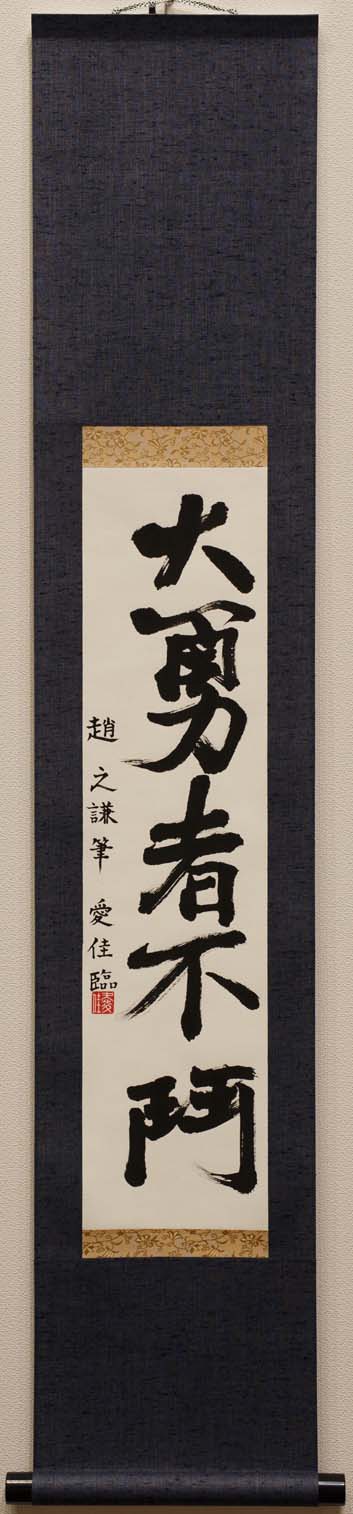 大勇者不鬥
趙之謙筆 愛佳臨
愛佳